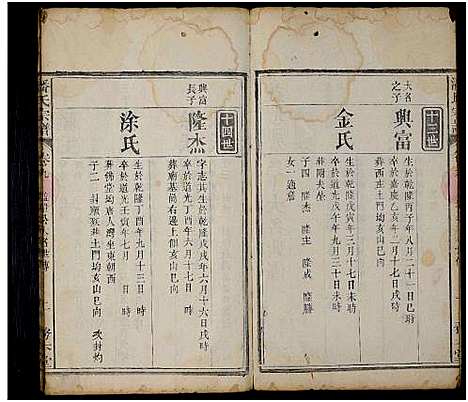 十三世
大名之子
興富
生於乾隆丙子年八月二十一日
卒於嘉慶乙亥年十月十七日戌時
葬西
土門坳亥山巳向
金氏
生於乾隆庚寅年三月十七日
卒於道光戊午年九月三十日未時
葬附夫塋
子四 隆杰 隆主 隆成 隆勝
女一 適詹
十四世
興富長子
隆杰
字志其生於乾隆戊戌年六月十六日戌時
卒於道光丁酉年六月十七日 時
葬廟基尚右邊上側亥山巳向
涂氏
生於乾隆丁酉年九月十三日 時
卒於道光壬寅年七月 日 時
葬佛堂坳唐人灣坐東朝西
子二
土門坳亥山巳向
次封灼
潘氏宗譜